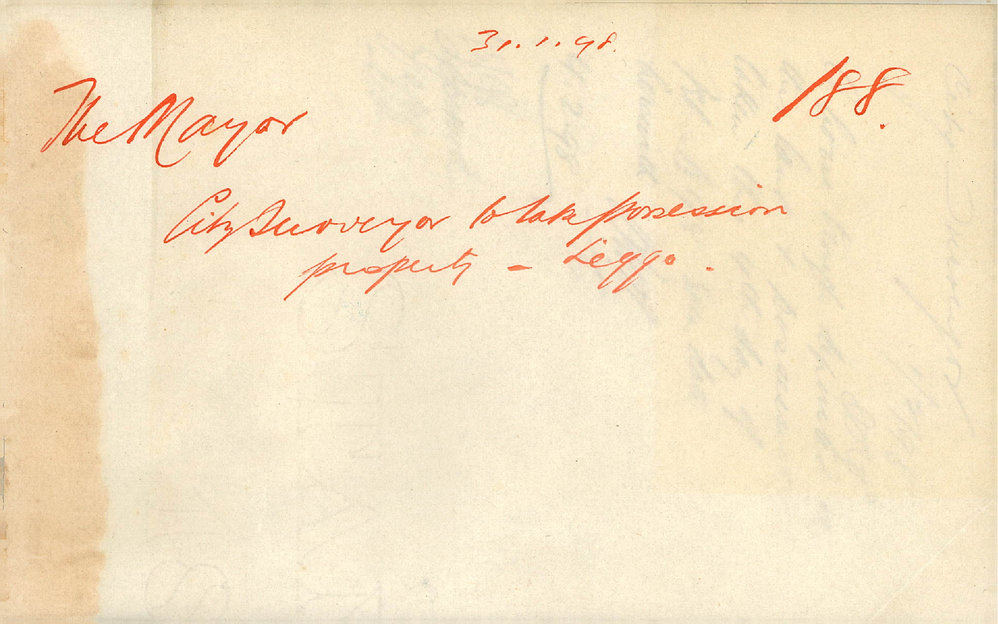 31.1.98.
188.
The Mayor
City Surveyor to take possession
property - Leggo.